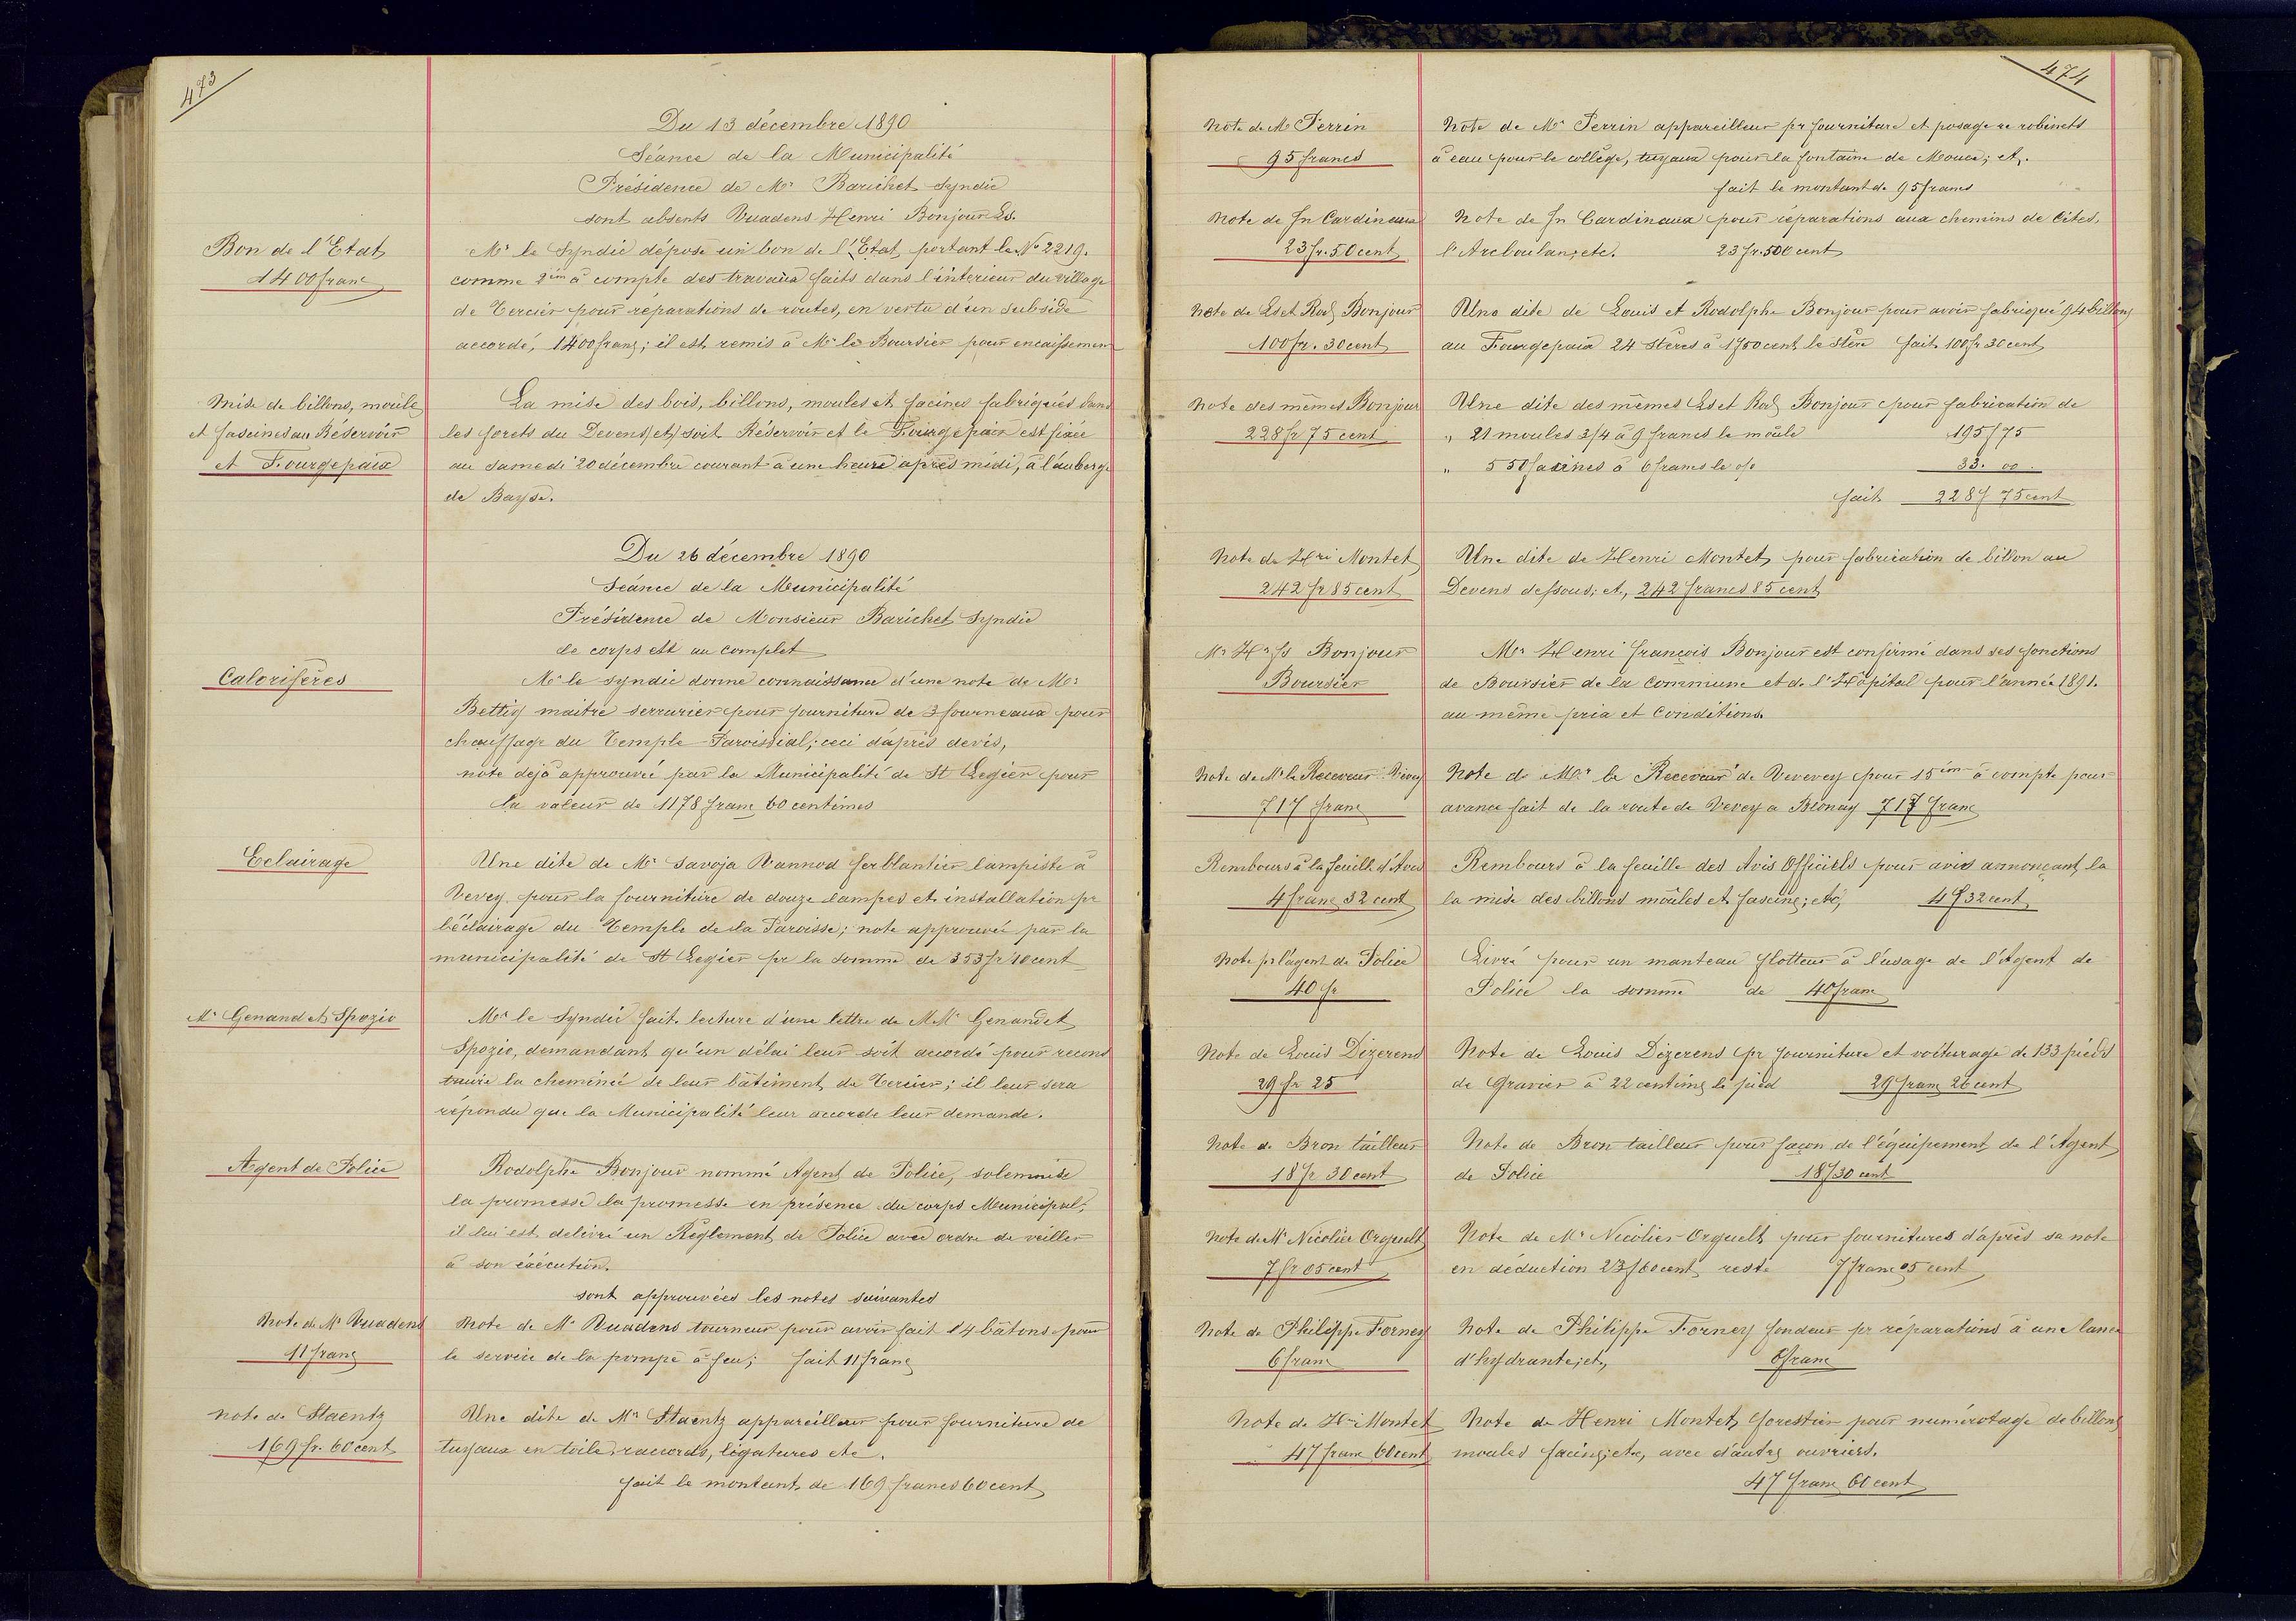 473
Du 13 décembre 1890
Séance de la Municipalité
Présidence de Mr Barichet Syndic
sont absents Vuadens Henri Bonjour Ls.
Bon de l'Etat
1400 franc
Mr le Syndic dépose un bon de l'Etat, portant le No 2219.
comme 2im à compte des travaux faits dans l'intérieur du village
de Tercier pour réparations de routes, en vertu d'un subside
accordé, 1400 franc; il est remis à Mr le Boursier pour encaissemen
Mise de billons, moule
et fascines au Réservoir
et Fourgepaix
La mise des bois, billons, moules et facines fabriqués dans
les forets du Devens et soit Réservoir et le Fourgepaix est fixée
au samedi 20 décembre courant à une heure après midi, à l'auberge
de Bayse.
Du 26 décembre 1890
Séance de la Municipalité
Présidence de Monsieur Barichet Syndic
Le corps est au complet
Calorifères
Mr le Syndic donne connaissance d'une note de Mr
Bettig maitre serrurier pour fourniture de 3 fourneaux pour
chauffage du Temple Paroissial; ceci d'après devis,
note dejà approuvée par la Municipalité de St Legier pour
la valeur de 1178 franc 60 centimes
Eclairage
Une dite de Mr Savoja Vannod ferblantier lampiste à
Vevey pour la fourniture de douze lampes et installation pr
l'éclairage du Temple de la Paroisse; note approuvée par la
municipalité de St Legier pr la somme de 353 fr 40 cent
Mr Genand et Spozio
Mr le Syndic fait lecture d'une lettre de MMr Genand et
Spozio, demandant qu'un délai leur soit accordé pour recons
truire la cheminée de leur bâtiment de Tercier; il leur sera
répondu que la Municipalité leur accorde leur demande.
Agent de Police
Rodolphe Bonjour nommé Agent de Police, solemnise
la promesse la promesse en présence du corps Municipal;
il lui est delivré un Règlement de Police avec ordre de veiller
à son éxécution.
sont approuvées les notes suivantes
Note de Mr Vuadens
11 franc
Note de Mr Vuadens tourneur pour avoir fait 14 bâtons pour
le service de la pompe à feu; fait 11 franc
note de Staentz
169 fr. 60 cent
Une dite de Mr Staentz appareilleur pour fourniture de
tuyaux en toile, raccords, ligatures etc.
fait le montant de 169 francs 60 cent
474
Note de M Perrin
95 francs
Note de Mr Perrin appareilleur pr fourniture et posage de robinets
à eau pour le collège, tuyaux pour la fontaine de ; et,.
fait le montant de 95 francs
Note de Jn Cardinaux
23 fr. 50 cent
Note de Jn Cardinaux pour réparations aux chemins de Cites,
l'Arcboulan; etc. 23 fr. 500 cent
Note de Ls et Rod Bonjour
100 fr. 30 cent
Une dite de Louis et Rodolphe Bonjour pour avoir fabriqué 94 billons
au Fourgepaix 24 stères à 1f 50 cent le Stère fait 100 fr 30 cent
Note des mêmes Bonjour
228 fr 75 cent
Une dite des mêmes Ls et Rod Bonjour pour fabrication de
" 21 moules 3/4 à 9 francs le moule 195f 75
" 550 facines à 6 francs le o/o 33. 00.
fait 228f 75 cent
Note de Hri Montet
242 fr 85 cent
Une dite de Henri Montet, pour fabrication de billon au
Devens dessous; et, 242 francs 85 cent
Mr Hri fs Bonjour
Boursier
Mr Henri François Bonjour est confirmé dans ses fonctions
de Boursier de la Commune et de l'Hôpital pour l'année 1891.
au même prix et Conditions.
Note de Mr le Receveur Vevey
717 franc
Note de Mr le Receveur de Vevevey pour 15im à compte pour
avance fait de la route de Vevey a Blonay 717 franc
Rembours à la feuille d'Avis
4 franc 32 cent
Rembours à la feuille des Avis Officiels pour avis annonçant la
la mise des billons moules et fascine; etc, 4f 32 cent
Note pr l'agent de Police
40 fr
Livré pour un manteau flotteur à l'usage de l'Agent de
Police la somme de 40 franc
Note de Louis Dizerens
29 fr 25
Note de Louis Dizerens pr fourniture et voiturage de 133 pieds
de Gravier à 22 centime le pied 29 franc 26 cent
Note de Bron tailleur
18 fr 30 cent
Note de Bron tailleur pour façon de l'équipement de l'Agent
de Police 18f 30 cent
Note de Mr Nicolier Orguelt
7 fr 05 cent
Note de Mr Nicolier Orguelt pour fournitures d'après sa note
en déduction 23f 60 cent, reste 7 franc 05 cent
Note de Philippe Forney
6 franc
Note de Philippe Forney fondeur pr réparations à une lance
d'hydrante; et, 6 franc
Note de Hri Montet
47 franc 60 cent
Note de Henri Montet, forestier pour numérotage de billons
moules facine; etc, avec d'autre ouvriers.
47 franc 60 cent